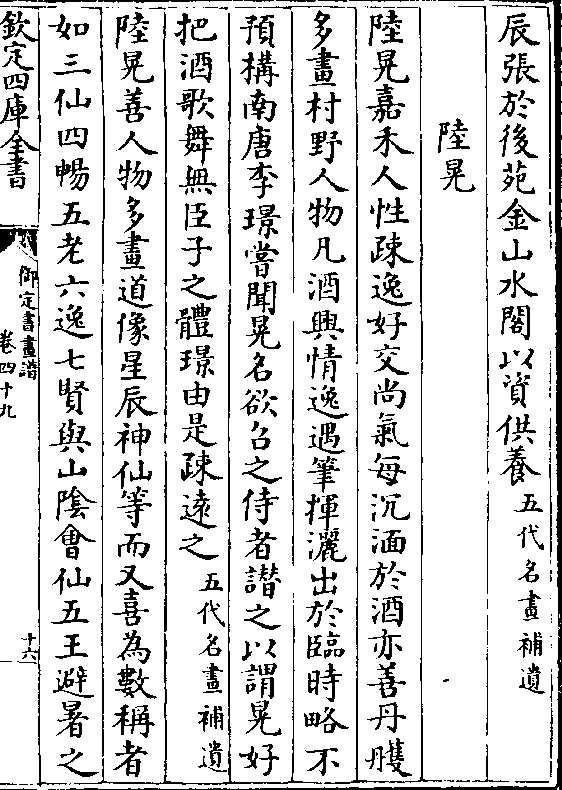 辰張於後苑金山水閣以資供養五代名畫補遺
陸晃
陸晃嘉禾人性疎逸好交尚氣每沉湎於酒亦善丹雘
多畫村野人物凡酒興情逸遇筆揮灑出於臨時略不
預構南唐李璟嘗聞晃名欲召之侍者譖之以謂晃好
把酒歌舞無臣子之體璟由是疎逺之五代名畫補遺
陸晃善人物多畫道像星辰神仙等而又喜為數稱者
如三仙四暢五老六逸七賢與山陰會仙五王避暑之
欽定四庫全書
御定書畫譜
卷四十九
十六